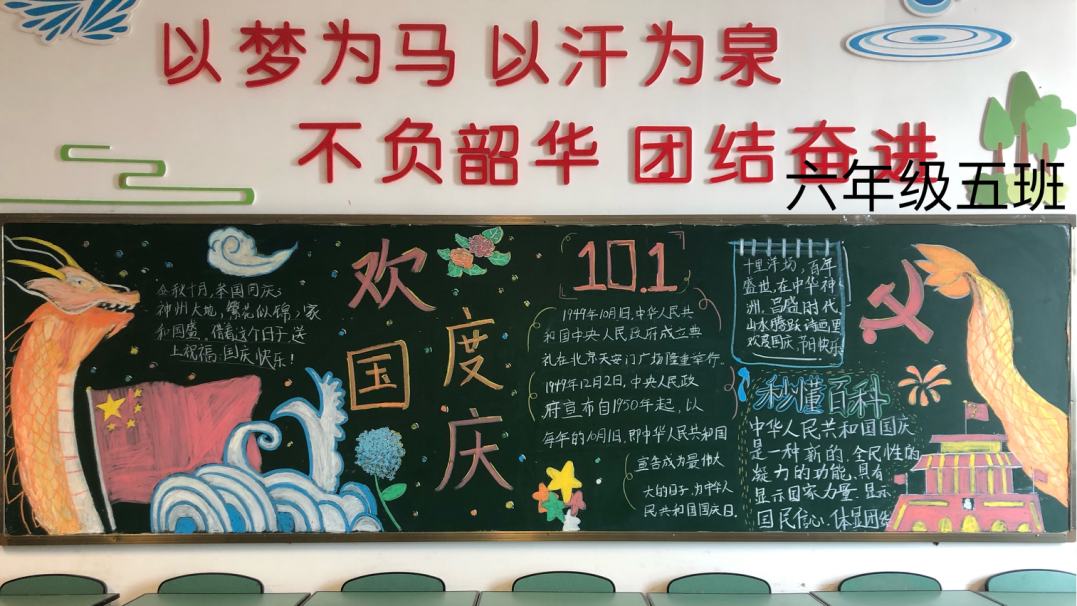 以梦为马 以汗为泉
不负韶华 团结奋进
六年级五班
欢度国庆
金秋十月,举国同庆;
神州大地,繁花似锦;家
和国盛,借着这个日子,送
上祝福:国庆快乐!
10.1
1949年10月1日,中华人民共
和国中央人民政府成立典
礼在北京天安门广场隆重举行.
1949年12月2日,中央人民政
府宣布自1950年起,以
每年的10月1日,即中华人民共和国
宣告成为最伟大
大的日子,为中华人
民共和国国庆日.
十里洋场,百年
盛世,在中华神
洲,昌盛时代,
山水腾跃诗画里
欢度国庆,节日快乐
秒懂百科
中华人民共和国国庆
是一种新的,全民性的
凝力的功能,具有
显示国家力量,显示
国民信心,体显团结